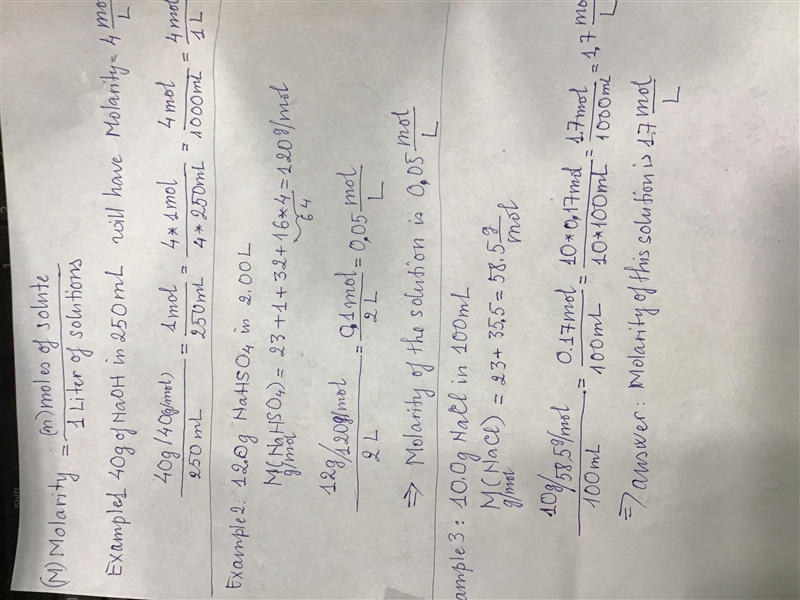 (M) Molarity = (n) moles of solute / 1 Liter of solutions
Example1 40g of NaOH in 250mL will have Molarity = 4 mol/L
40g/40g/mol) / 250mL = 1mol / 250mL = 4*1mol / 4*250mL = 4mol / 1000mL = 4mol / 1L
Example2: 12.0g NaHSO4 in 2.00L
M(NaHSO4) = 23+1+32+16*4 = 120g/mol
g/mol 64
12g/120g/mol / 2L = 0,1mol / 2L = 0,05 mol/L
⇒ Molarity of the solution is 0,05 mol/L
ample3: 10.0g NaCl in 100mL
M(NaCl) = 23+35,5 = 58.5 g/mol
g/mol
10g/58.5g/mol / 100mL = 0.17mol / 100mL = 10*0,17mol / 10*100mL = 1.7mol / 1000mL = 1,7 mol/L
⇒ answer: Molarity of this solution is 1,7 mol/L